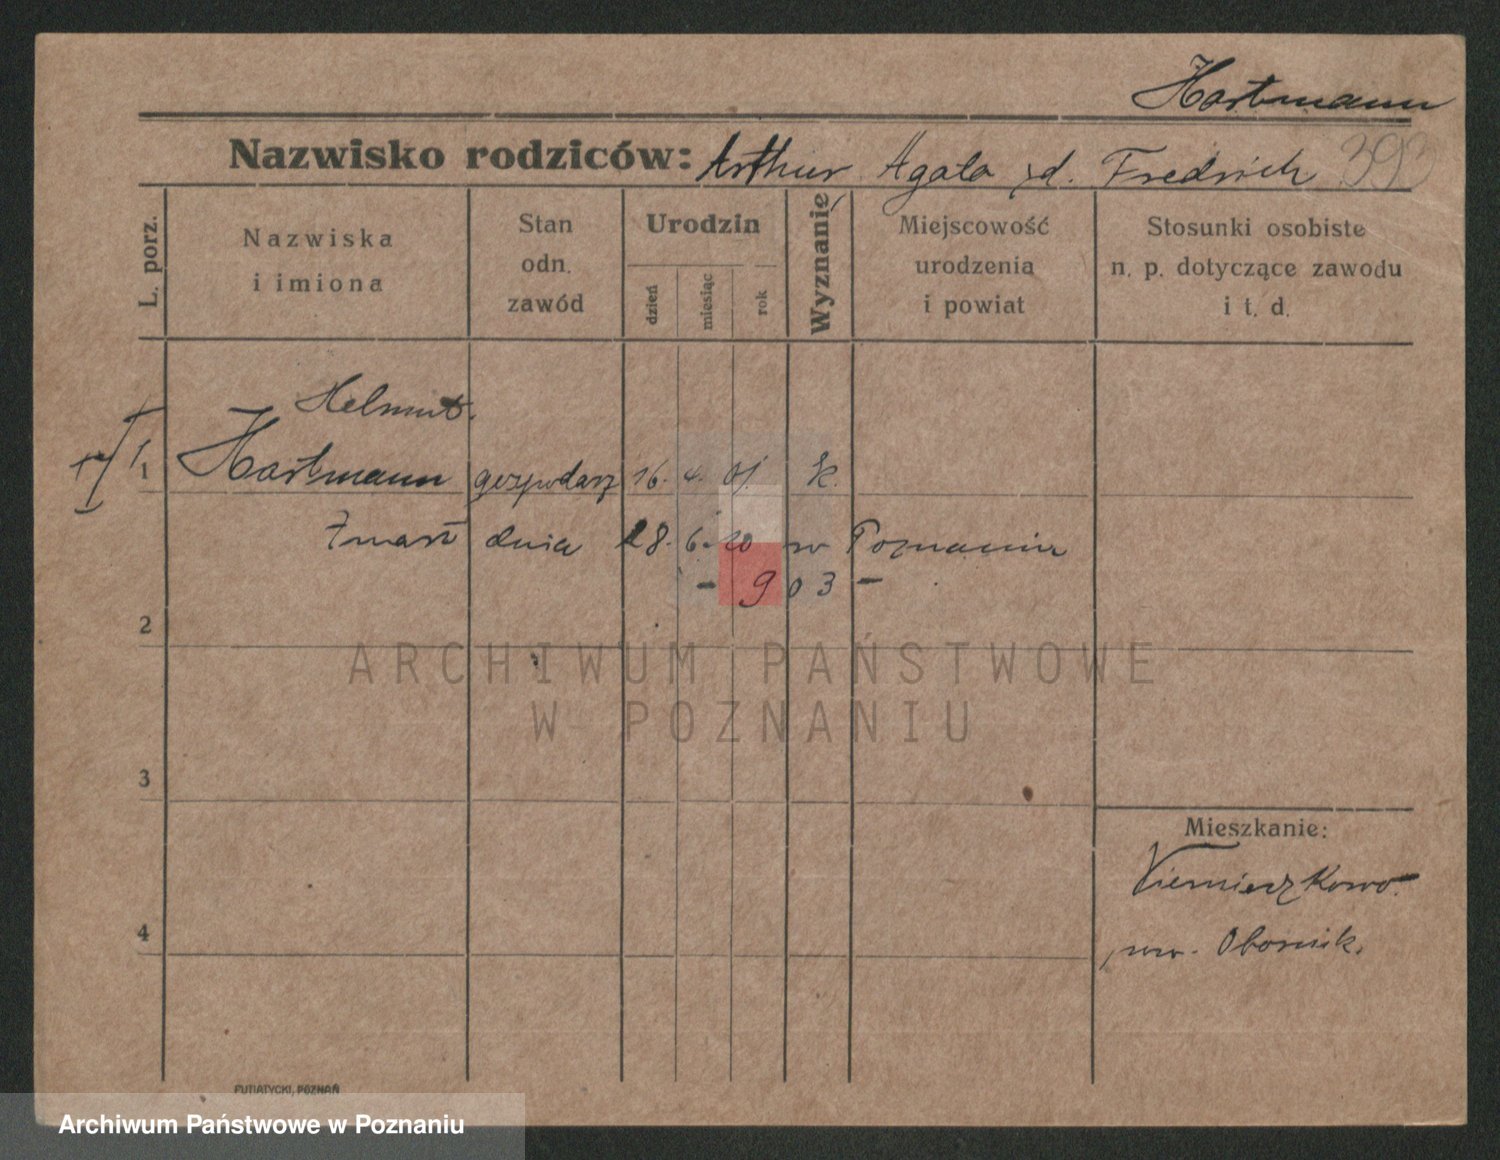 Hartmann
Nazwisko rodziców: Arthur, Agata z d. Fredrich
L. porz.
Nazwiska i imiona
Stan odn. zawód
Urodzin
dzień
miesiąc
rok
Wyznanie
Miejscowość urodzenia i powiat
Stosunki osobiste n. p. dotyczące zawodu i t. d.
Helmut.
1 Hartmann gospodarz 16. 4. 01. k.
Zmarł dnia 28. 6. 20 w Poznaniu
- 903 -
2
ARCHIWUM PAŃSTWOWE
W POZNANIU
3
Mieszkanie:
pow. Obornik.
4
PUTIATYCKI, POZNAŃ
Archiwum Państwowe w Poznaniu